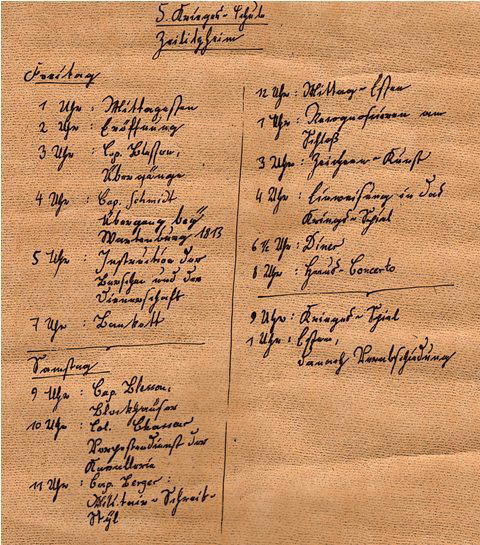 5. Krieges-Schul
Zeilitzheim
Freitag
1 Uhr : Mittagessen
2 Uhr : Eröffnung
3 Uhr : Cap. Blesson,
Übergänge
4 Uhr : Cap. Schmidt
Übergang bey
Wartenburg 1813
5 Uhr : Instruction der
Burschen und der
Dienerschaft
7 Uhr : Bankett
Samstag
9 Uhr : Cap. Blesson:
Blockhäuser
10 Uhr : Col.
Vorpostendienst der
Kavallerie
11 Uhr : Cap. Berger:
Militair-Schreib-
Styl
12 Uhr : Mittag-Essen
1 Uhr : Recognoscieren am
Schloß
3 Uhr : Zeichnen-Kunst
4 Uhr : Einweisung in das
Kriegs-Spiel
6 ½ Uhr : Diner
8 Uhr : Haus-Concerto
9 Uhr : Krieges-Spiel
1 Uhr : Essen,
danach Verabschiedung